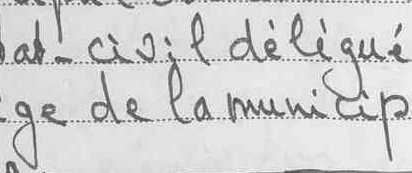 at-civil délégué
ge de la municip